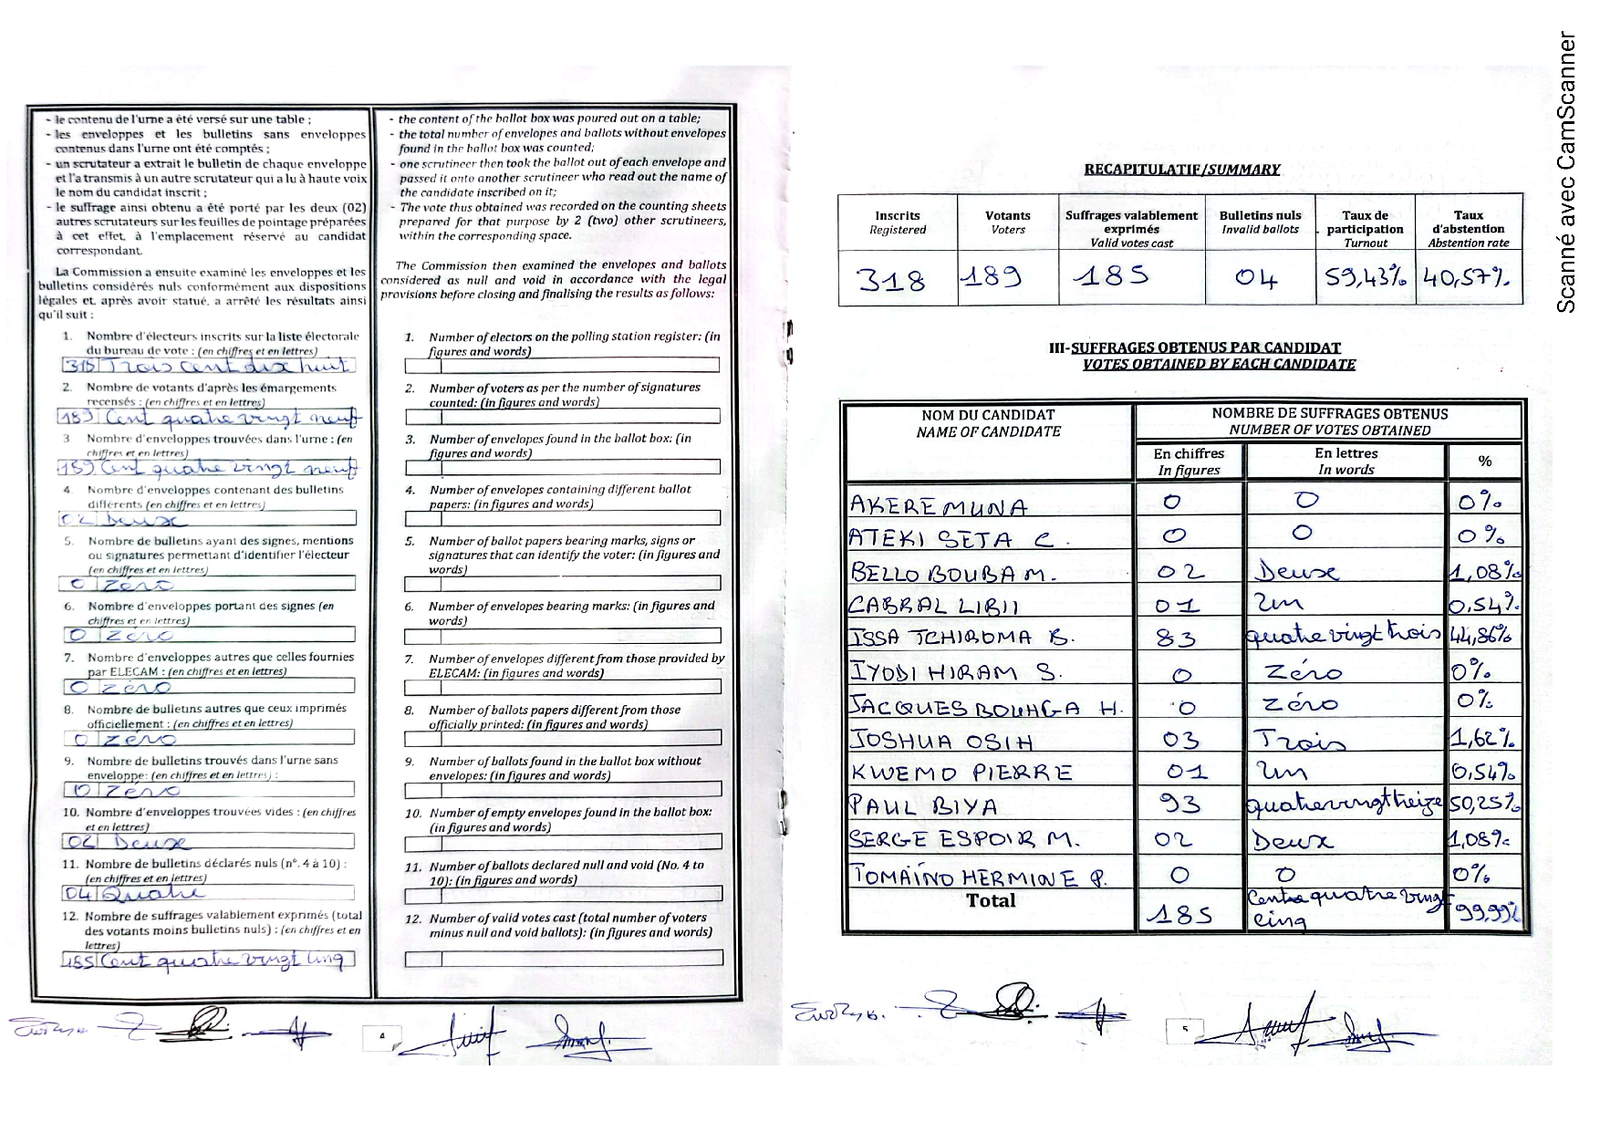 - le contenu de l'urne a été versé sur une table ;
- les enveloppes et les bulletins sans enveloppes
contenus dans l'urne ont été comptés ;
- un scrutateur a extrait le bulletin de chaque enveloppe
et l'a transmis à un autre scrutateur qui a lu à haute voix
le nom du candidat inscrit ;
- le suffrage ainsi obtenu a été porté par les deux (02)
autres scrutateurs sur les feuilles de pointage préparées
à cet effet, à l'emplacement réservé au candidat
correspondant.
La Commission a ensuite examiné les enveloppes et les
bulletins considérés nuls conformément aux dispositions
légales et, après avoir statué, a arrêté les résultats ainsi
qu'il suit :
1. Nombre d'électeurs inscrits sur la liste électorale
du bureau de vote : (en chiffres et en lettres)
318 Trois cent dix huit
2. Nombre de votants d'après les émargements
recensés : (en chiffres et en lettres)
189 Cent quatre vingt neuf
3 Nombre d'enveloppes trouvées dans l'urne : (en
chiffres et en lettres)
189 Cent quatre vingt neuf
4. Nombre d'enveloppes contenant des bulletins
différents (en chiffres et en lettres)
02 Deux
5. Nombre de bulletins ayant des signes, mentions
ou signatures permettant d'identifier l'électeur
(en chiffres et en lettres)
0 Zéro
6. Nombre d'enveloppes portant des signes (en
chiffres et en lettres)
0 Zéro
7. Nombre d'enveloppes autres que celles fournies
par ELECAM : (en chiffres et en lettres)
0 Zéro
8. Nombre de bulletins autres que ceux imprimés
officiellement : (en chiffres et en lettres)
0 Zéro
9. Nombre de bulletins trouvés dans l'urne sans
enveloppe: (en chiffres et en lettres) :
0 Zéro
10. Nombre d'enveloppes trouvées vides : (en chiffres
et en lettres)
02 Deux
11. Nombre de bulletins déclarés nuls (n°. 4 à 10) :
(en chiffres et en lettres)
04 Quatre
12. Nombre de suffrages valablement exprimés (total
des votants moins bulletins nuls) : (en chiffres et en
lettres)
185 Cent quatre vingt cinq
- the content of the ballot box was poured out on a table;
- the total number of envelopes and ballots without envelopes
found in the ballot box was counted;
- one scrutineer then took the ballot out of each envelope and
passed it onto another scrutineer who read out the name of
the candidate inscribed on it;
- The vote thus obtained was recorded on the counting sheets
prepared for that purpose by 2 (two) other scrutineers,
within the corresponding space.
The Commission then examined the envelopes and ballots
considered as null and void in accordance with the legal
provisions before closing and finalising the results as follows:
1. Number of electors on the polling station register: (in
figures and words)
2. Number of voters as per the number of signatures
counted: (in figures and words)
3. Number of envelopes found in the ballot box: (in
figures and words)
4. Number of envelopes containing different ballot
papers: (in figures and words)
5. Number of ballot papers bearing marks, signs or
signatures that can identify the voter: (in figures and
words)
6. Number of envelopes bearing marks: (in figures and
words)
7. Number of envelopes different from those provided by
ELECAM: (in figures and words)
8. Number of ballots papers different from those
officially printed: (in figures and words)
9. Number of ballots found in the ballot box without
envelopes: (in figures and words)
10. Number of empty envelopes found in the ballot box:
(in figures and words)
11. Number of ballots declared null and void (No. 4 to
10): (in figures and words)
12. Number of valid votes cast (total number of voters
minus null and void ballots): (in figures and words)
4
RECAPITULATIF/SUMMARY
Inscrits Votants Suffrages valablement Bulletins nuls Taux de Taux
Registered Voters exprimés Invalid ballots participation d'abstention
Valid votes cast Turnout Abstention rate
318 189 185 04 59,43% 40,57%
III-SUFFRAGES OBTENUS PAR CANDIDAT
VOTES OBTAINED BY EACH CANDIDATE
NOM DU CANDIDAT NOMBRE DE SUFFRAGES OBTENUS
NAME OF CANDIDATE NUMBER OF VOTES OBTAINED
En chiffres En lettres %
In figures In words
AKERE MUNA 0 0 0%
ATEKI SETA C. 0 0 0%
BELLO BOUBA M. 02 Deuxe 1,08%
CABRAL LIBII 01 Un 0,54%
ISSA TCHIROMA B. 83 quatre vingt trois 44,86%
IYODI HIRAM S. 0 Zéro 0%
JACQUES BOUHGA H. 0 zéro 0%
JOSHUA OSIH 03 Trois 1,62%
KWEMO PIERRE 01 Un 0,54%
PAUL BIYA 93 quatre vingt treize 50,25%
SERGE ESPOIR M. 02 Deux 1,08%
TOMAÏNO HERMINE P. 0 0 0%
Total 185 Centre quatre vingt cinq 99,99%
5
Scanné avec CamScanner